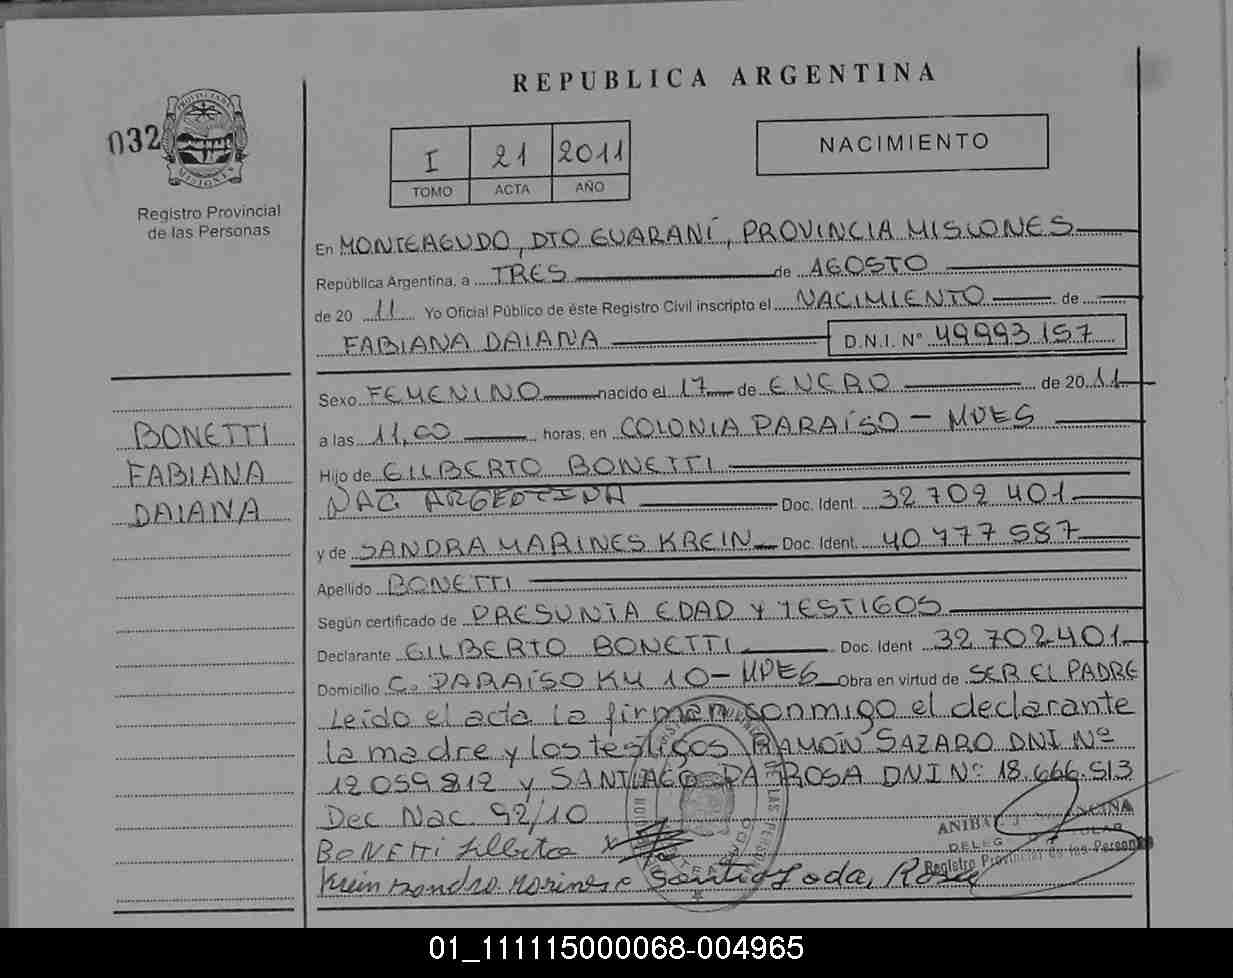 REPUBLICA ARGENTINA
032
PROVINCIA DE MISIONES
Registro Provincial
de las Personas
I 21 2011
TOMO ACTA AÑO
NACIMIENTO
En MONTEAGUDO, DTO GUARANÍ, PROVINCIA MISIONES
República Argentina, a TRES de AGOSTO
de 20 11 Yo Oficial Público de éste Registro Civil inscripto el NACIMIENTO de
FABIANA DAIANA D.N.I. Nº 49993157
Sexo FEMENINO nacido el 17 de ENERO de 20 11
a las 11,00 horas, en COLONIA PARAÍSO - MNES
Hijo de GILBERTO BONETTI
NAC ARGENTINA Doc. Ident. 32702401
y de SANDRA MARINES KREIN Doc. Ident. 40777587
Apellido BONETTI
Según certificado de PRESUNTA EDAD Y TESTIGOS
Declarante GILBERTO BONETTI Doc. Ident 32702401
Domicilio C. PARAÍSO KM 10 - MNES Obra en virtud de SER EL PADRE
Leído el acta la firman conmigo el declarante
la madre y los testigos RAMÓN SAZARO DNI Nº
12059812 y SANTIAGO DA ROSA DNI Nº 18.666.513
Dec Nac. 92/10
BONETTI
Registro Provincial de las Personas
Krein Sandra Marines
BONETTI
FABIANA
DAIANA
01_111115000068-004965